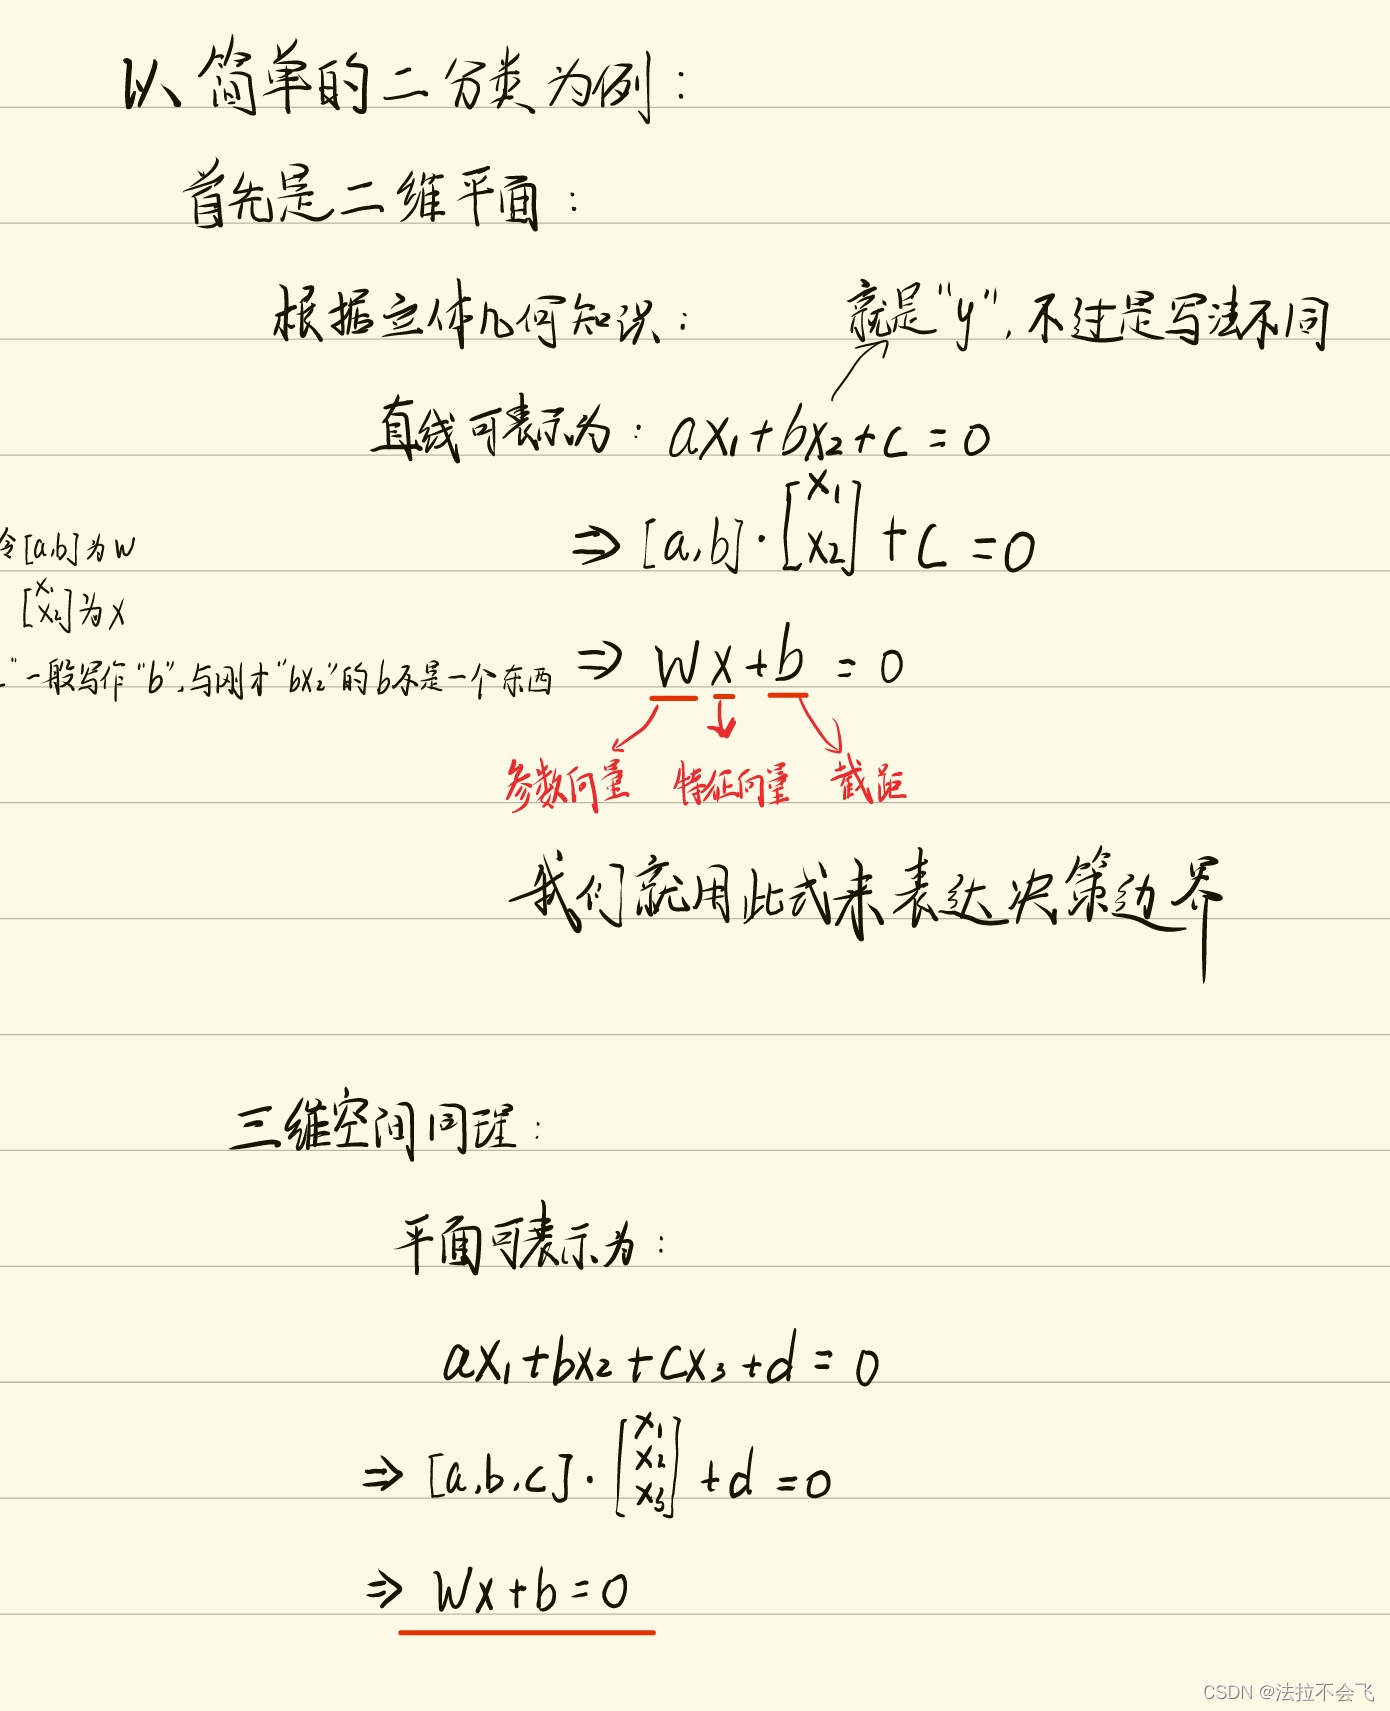 以简单的二分类为例：
首先是二维平面：
根据立体几何知识：
就是“y”，不过是写法不同
直线可表示为：ax₁+bx₂+c=0
⇒ [a,b]·[x₁ x₂]+c=0
令[a,b]为w
[x₁ x₂]为x
”一般写作“b”，与刚才“bx₂”的b不是一个东西
⇒ wx+b=0
参数向量 特征向量 截距
我们就用此式来表达决策边界
三维空间同理：
平面可表示为：
ax₁+bx₂+cx₃+d=0
⇒ [a,b,c]·[x₁ x₂ x₃]+d=0
⇒ wx+b=0
CSDN @法拉不会飞